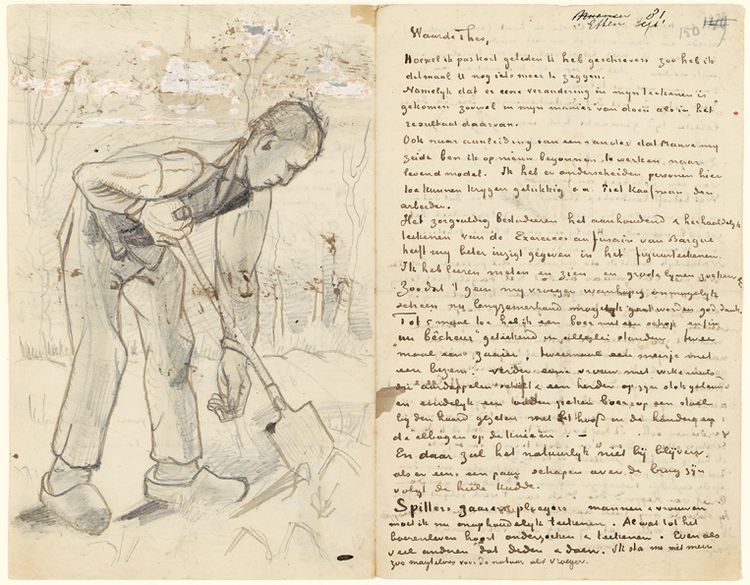 Etten Sept. 81
150
Waarde Theo,
Hoewel ik pas kort geleden U heb geschreven zoo heb ik
ditmaal U nog iets meer te zeggen.
Namelijk dat er eene verandering in mijn teekenen is
gekomen zoowel in mijn manier van doen als in het
resultaat daarvan.
Ook naar aanleiding van een en ander dat Mauve mij
zeide ben ik op nieuw begonnen te werken naar
levend model. Ik heb er onderscheiden personen hier
toe kunnen krijgen gelukkig o.a. Piet Kaufman den
arbeider.
Het zorgvuldig bestuderen het aanhoudend & herhaaldelijk
teekenen van de Exercices au fusain van Bargue
heeft mij beter inzigt gegeven in het figuurteekenen.
Ik heb leeren meten en zien en groote lijnen zoeken &
Zoo dat 't geen mij vroeger wanhopig onmogelijk
scheen nu langzamerhand mogelijk gaat worden god dank.
Tot 5 maal toe heb ik een boer met een schop enfin
un bêcheur geteekend in allerlei standen, twee
maal een zaaier, tweemaal een meisje met
een bezem. verder eene vrouw met witte muts
die aardappelen schilt & een herder op zijn stok geleund
en eindelijk een ouden zieken boer op een stoel
bij den haard gezeten met het hoofd in de handen en
de elbogen op de knieën. –
En daar zal het natuurlijk niet bij blijven,
als er eens een paar schapen over de brug zijn
volgt de heele kudde.
Spitters, zaaiers, ploegers mannen & vrouwen
moet ik nu onophoudelijk teekenen. Al wat tot het
boerenleven hoort onderzoeken & teekenen. Even als
veel anderen dat deden & doen. Ik sta nu niet meer
zoo magteloos voor de natuur als vroeger.